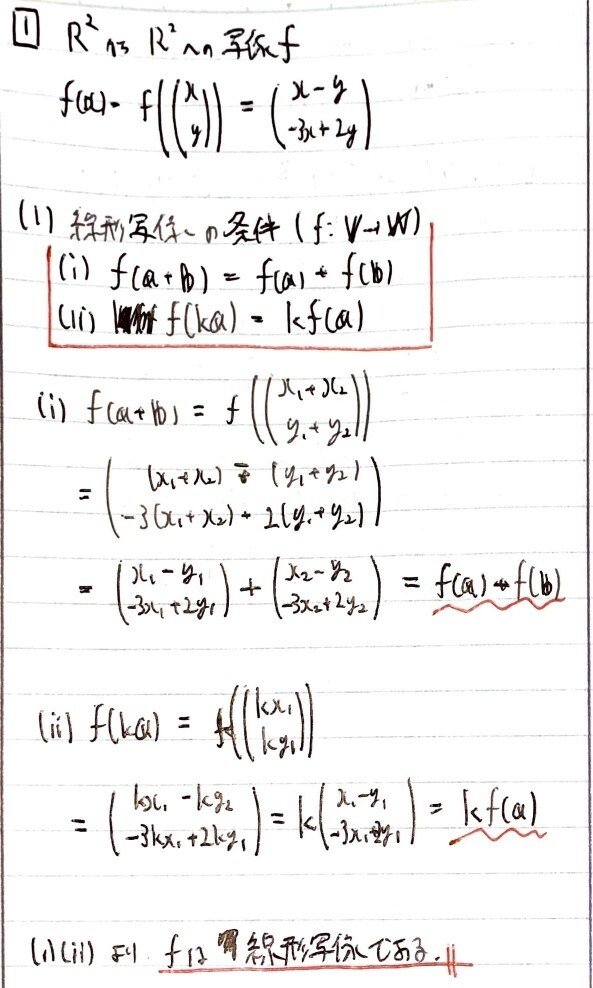 1 R² から R² への写像 f
f(a) = f((x y)) = (x-y -3x+2y)
(1) 線形写像への条件 (f: V→W)
(i) f(a+b) = f(a) + f(b)
(ii) f(ka) = kf(a)
(i) f(a+b) = f((x₁+x₂ y₁+y₂))
= ((x₁+x₂) - (y₁+y₂) -3(x₁+x₂) + 2(y₁+y₂))
= (x₁-y₁ -3x₁+2y₁) + (x₂-y₂ -3x₂+2y₂) = f(a) + f(b)
(ii) f(ka) = f((kx₁ ky₁))
= (kx₁ - ky₂ -3kx₁+2ky₁) = k(x₁-y₁ -3x₁+2y₁) = kf(a)
(i)(ii) より f は 線形写像である.